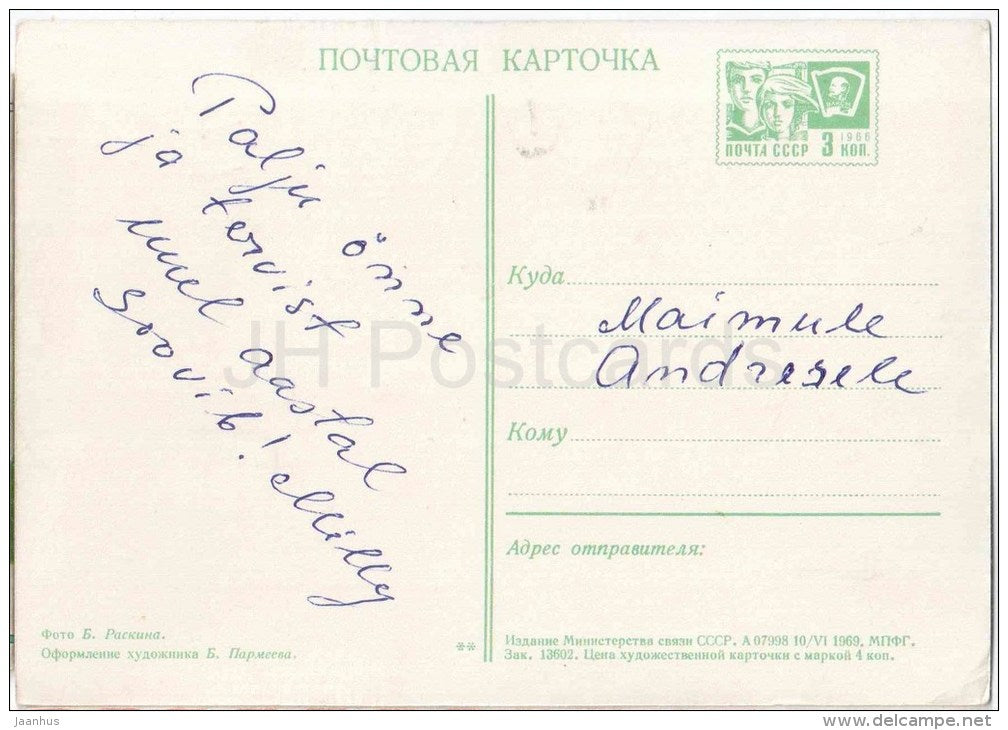 ПОЧТОВАЯ КАРТОЧКА
Palju õnne
ja tervist
uuel aastal
soovib! Milly
ПОЧТА СССР 3 КОП.
1966
Куда
Maimule
Andresele
Кому
Адрес отправителя:
Фото Б. Раскина.
Оформление художника Б. Пармеева.
**
Издание Министерства связи СССР. А 07998 10/VI 1969. МПФГ.
Зак. 13602. Цена художественной карточки с маркой 4 коп.
JH Postcards
jaanhus
www.delcampe.net